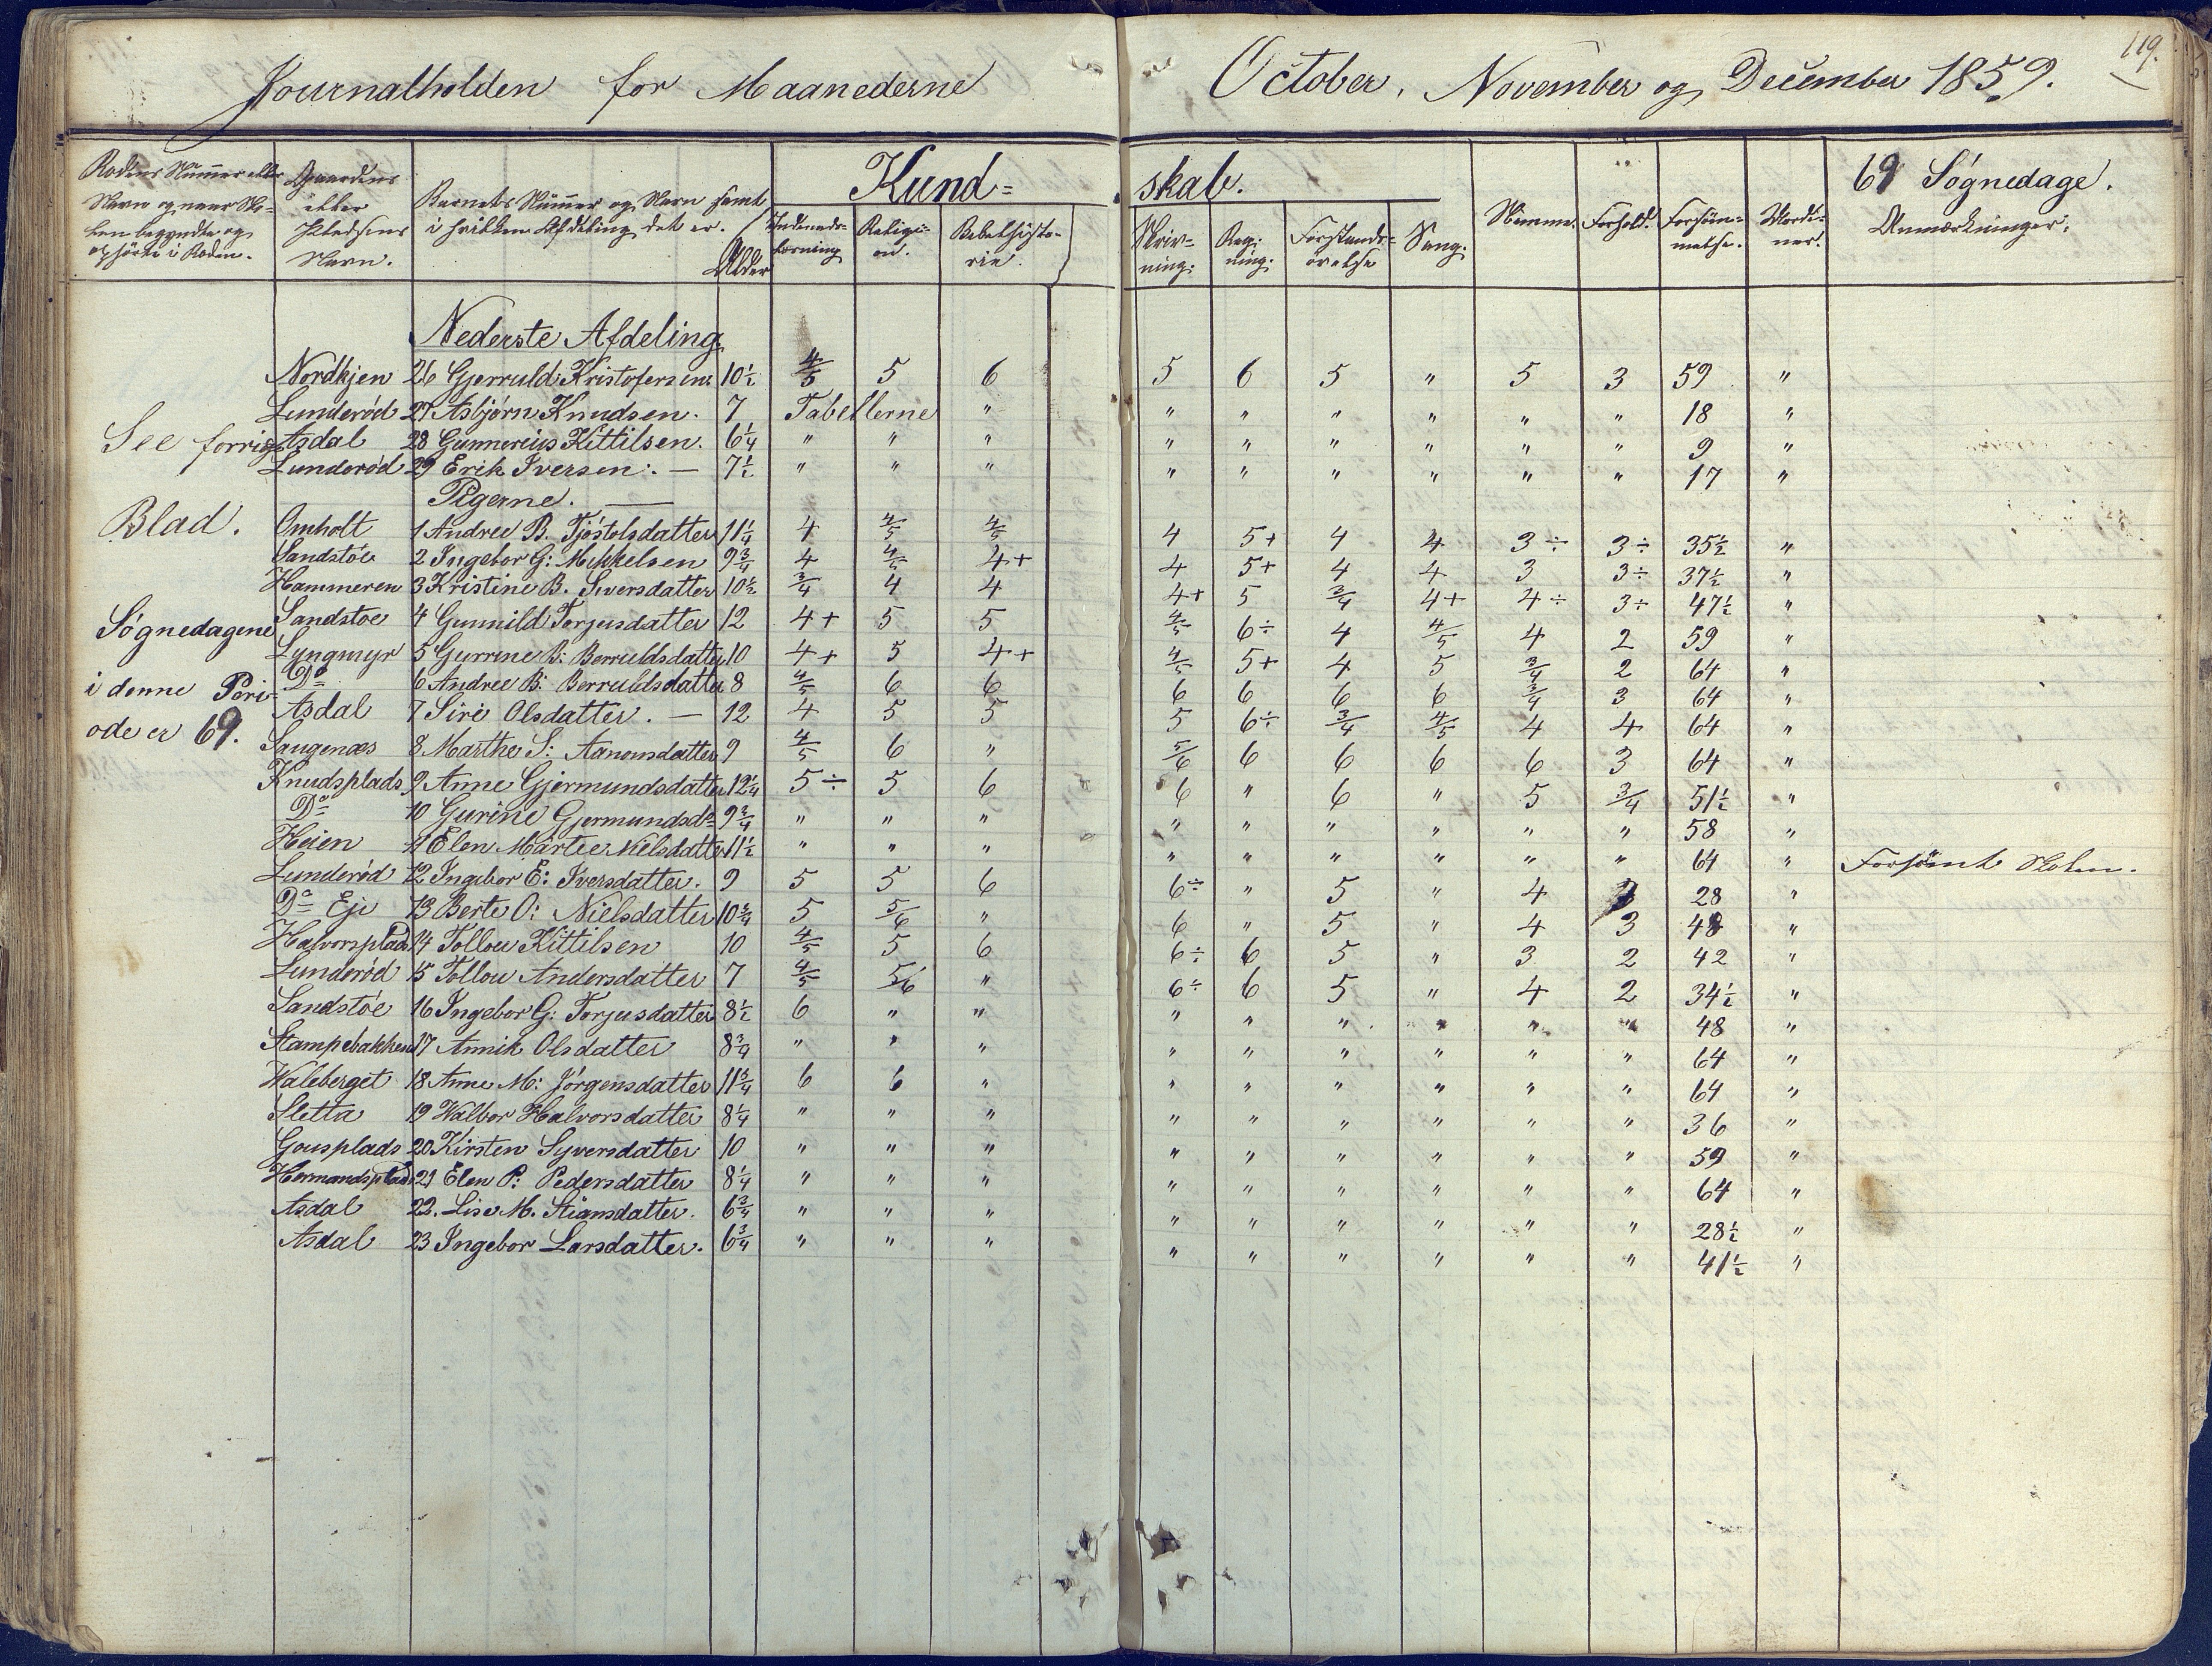 Journalholden for Maanederne October, November og December 1859.
119.
Rodens Nummer eller Navn og naar Skolen begyndte og ophörte i Roden.
Gaardens eller Pladsens Navn.
Barnets Nummer og Navn samt i hvilken Afdeling det er.
Alder
Kundskab.
Indenadslæsning
Religion.
Bibelhistorie.
Skrivning.
Regning.
Forstandsövelse
Sang.
Nemme.
Forhold.
Forsömmelse.
69 Søgnedage.
Anmærkninger.
Nederste Afdeling.
Nordkjen 26 Gjerruld Kristofersen. 10½ 4/5 5 6 5 6 5 " 5 3 59 "
Lunderød 27 Asbjørn Knudsen. 7 Tabellerne " " " " " " " 18 "
Asdal 28 Gunnereius Kittilsen. 6¼ " " " " " " " " " 9 "
Lunderød 29 Erik Iversen. — 7½ " " " " " " " " " 17 "
Pigerne. —
Omholt 1 Andree B. Tjöstolsdatter 11¼ 4 4/5 4/5 4 5+ 4 4 3÷ 3÷ 35½ "
Sandstøe 2 Ingebor G: Mikkelsen 9¾ 4 4/5 4+ 4 5+ 4 4 3 3÷ 37½ "
Hammeren 3 Kristine B. Siversdatter 10½ 3/4 4 4 4+ 5 3/4 4+ 4÷ 3÷ 47½ "
Sandstoe 4 Gunnild Torjusdatter 12 4+ 5 5 4/5 6÷ 4 4/5 4 2 59 "
Lyngmyr 5 Gurrine B: Berruldsdatter 10 4+ 5 4+ 4/5 5+ 4 5 3/4 2 64 "
Do 6 Andree B: Berruldsdatter 8 4/5 6 6 6 6 6 6 3/4 3 64 "
Asdal 7 Siri Olsdatter. — 12 4 5 5 5 6÷ 3/4 4/5 4 4 64 "
Saugenæs 8 Marthe S: Aanonsdatter 9 4/5 6 " 5/6 6 6 6 6 3 64 "
Knudsplads 9 Anne Gjermundsdatter 12¼ 5÷ 5 6 6 " 6 " 5 3/4 51½ "
Do 10 Gurine Gjermundsdr 9¾ " " " " " " " " " 58 "
Heien 11 Elen Martee Nielsdatter 11½ " " " " " " " " " 64 " Forsömt Skolen.
Lunderød 12 Ingebor E: Iversdatter. 9 5 5 6 6÷ " 5 " 4 28 "
Do Eje 13 Berte O: Nielsdatter 10¾ 5 5/6 " 6 " 5 " 4 3 48 "
Halvorsplads 14 Tollou Kittilsen 10 4/5 5 6 6÷ 6 5 " 3 2 42 "
Lunderød 15 Tollou Andersdatter 7 4/5 5/6 " 6÷ 6 5 " 4 2 34½ "
Sandstøe 16 Ingebor G: Torjusdatter 8½ 6 " " " " " " " " 48 "
Stampebakken 17 Annik Olsdatter 8¾ " " " " " " " " " 64 "
Waleberget 18 Anne M: Jörgensdatter 11¾ 6 6 " " " " " " " 64 "
Sletta 19 Walbor Halvorsdatter 8¼ " " " " " " " " " 36 "
Gousplads 20 Kirsten Syversdatter 10 " " " " " " " " " 59 "
Hermandsplads 21 Elen P: Pedersdatter 8¼ " " " " " " " " " 64 "
Asdal 22. Lise M. Stiansdatter. 6¾ " " " " " " " " " 28½ "
Asdal 23 Ingebor Larsdatter. 6¾ " " " " " " " " " 41½ "
See forrige
Blad.
Søgnedagene
i denne Peri-
ode er 69.